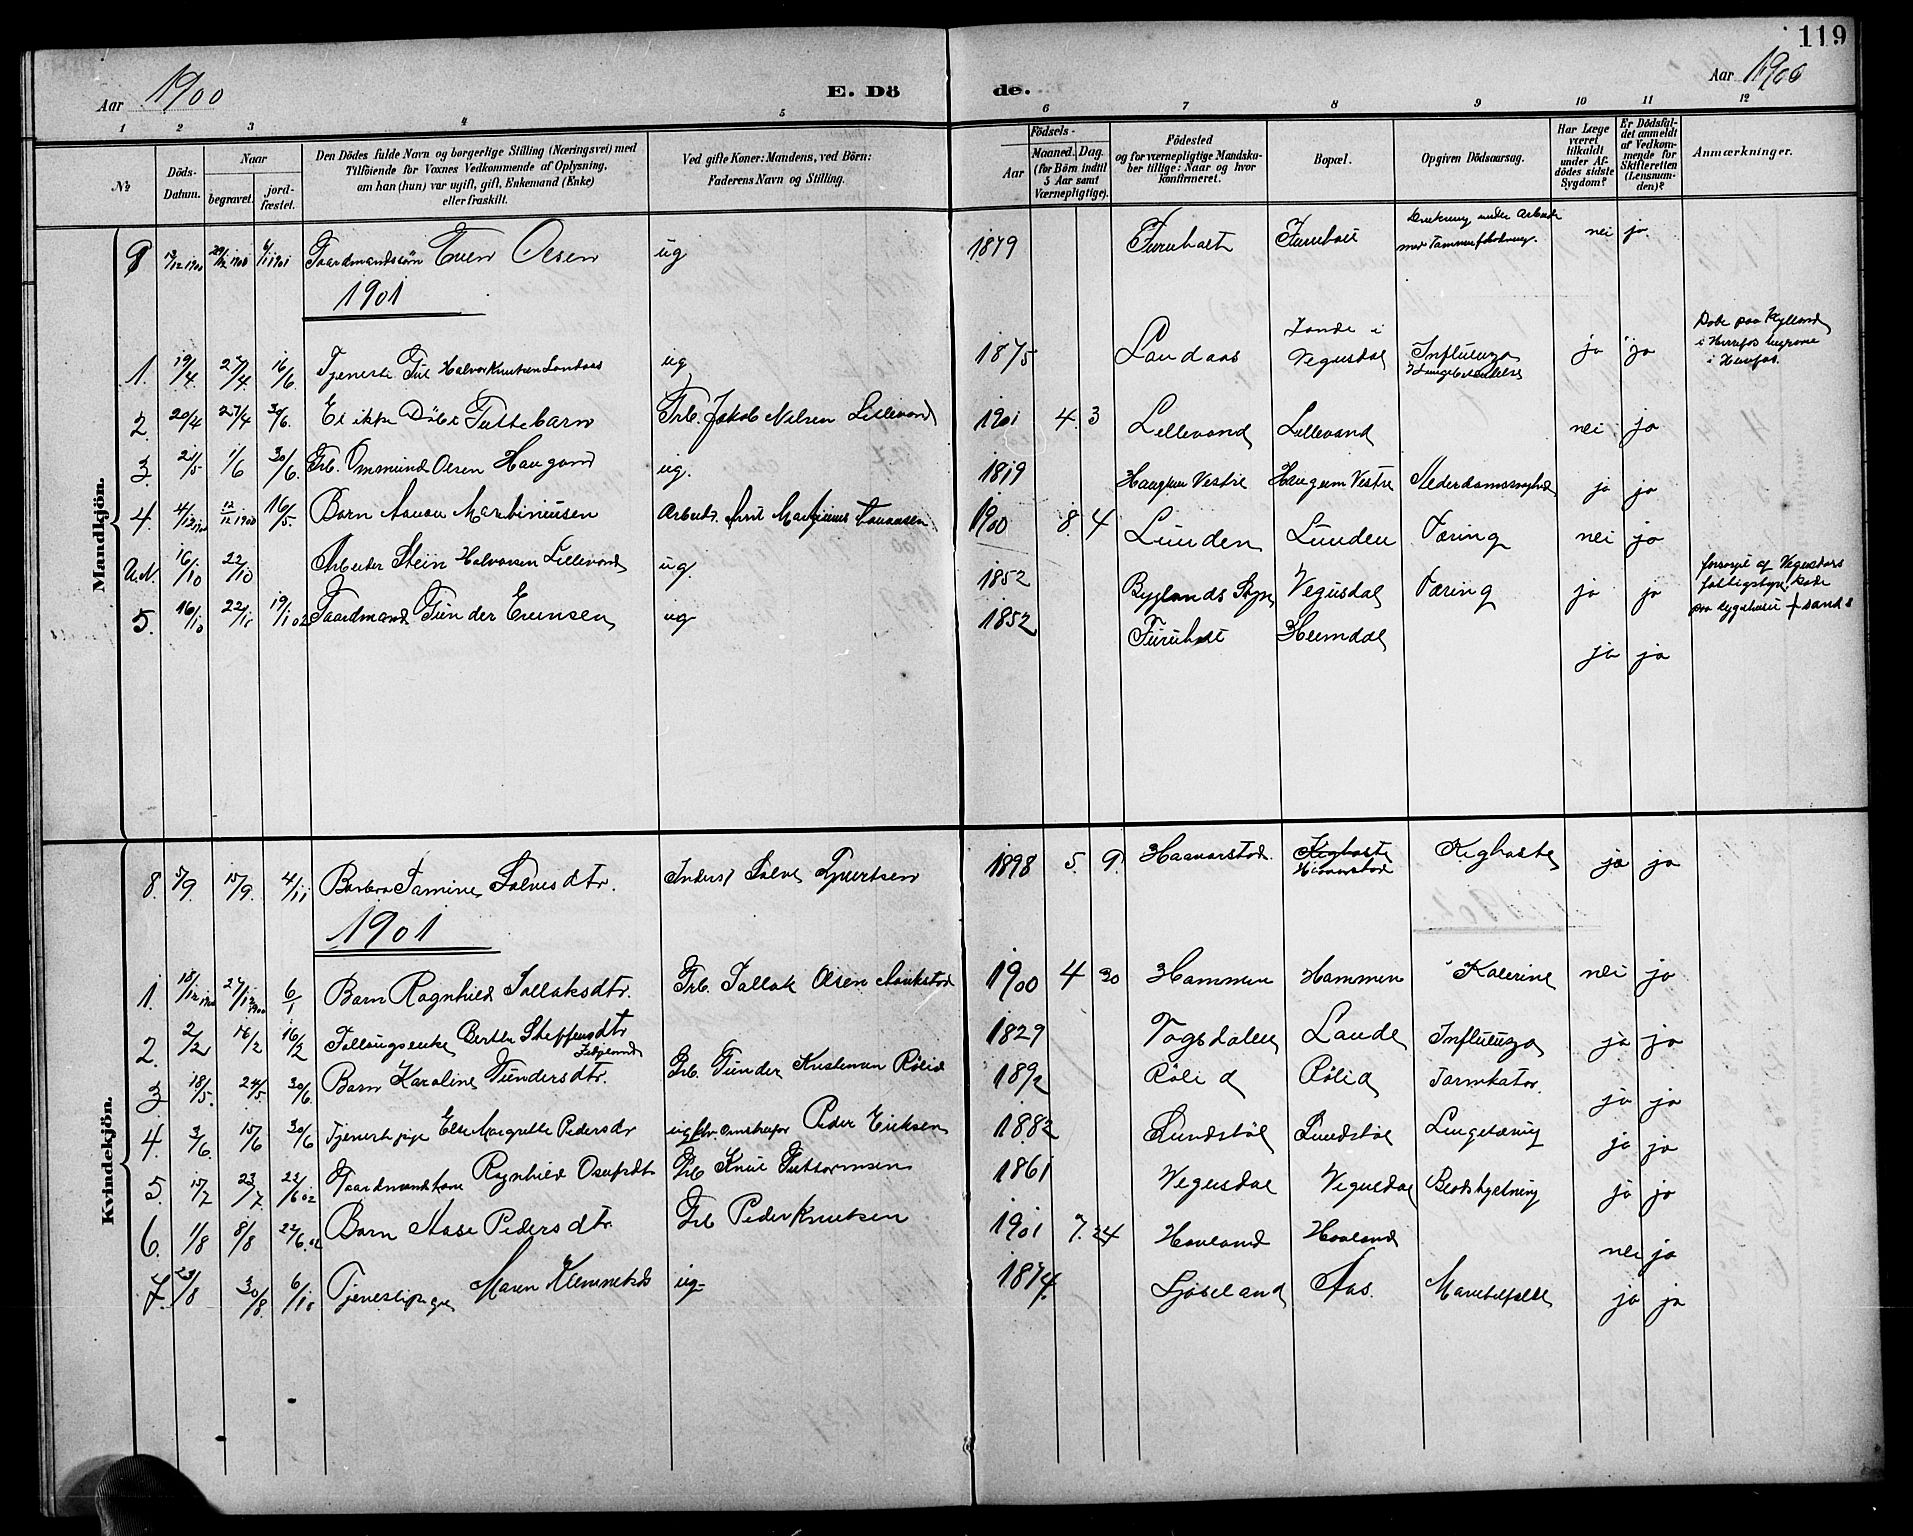 119
Aar 1900
E. Dö
de.
Aar 1900
1 2 3 4 5 6 7 8 9 10 11 12
No
Döds-Datum.
Naar
begravet.
jord-fæstet.
Den Dödes fulde Navn og borgerlige Stilling (Næringsvei) med
Tilföiende for Voxnes Vedkommende af Oplysning,
om han (hun) var ugift, gift, Enkemand (Enke)
eller fraskilt.
Ved gifte Koner: Mandens, ved Börn:
Faderens Navn og Stilling.
Födsels-
Aar
Maaned. Dag.
(for Börn indtil
5 Aar samt
Værnepligtige).
Födested
og for værnepligtige Mandska-
ber tillige: Naar og hvor
konfirmeret.
Bopæl.
Opgiven Dödsaarsag.
Har Læge
været
tilkaldt
under Af-
dödes sidste
Sygdom?
Er Dödsfal-
det anmeldt
af Vedkom-
mende for
Skifteretten
(Lensman-
den)?
Anmærkninger.
Mandkjön.
9 29/12 1900 6/1 1901 Gaardmandssön Even Olsen ug 1879 Furuholt Furuholt under Arbeide med Tømmerfløtning. nei ja
1901
1. 19/4 27/4 16/6 Tjeneste Halvor Knutsen Landaas ug 1875 Landaas Lande i Vegusdal Influenza Lungebetændelse ja ja i Herefos
2. 20/4 27/4 30/6 Et ikke Døbt Guttebarn Grb. Jakob Nilsen Lillevand 1901 4 3 Lillevand Lillevand nei ja
3. 21/5 1/6 30/6 Grb. Omsund Olsen Haugand ug. 1819 Haugum Vestre Haugum Vestre Alderdomssvaghed ja ja
4. 4/12 1900 12/12 1900 16/5 Barn Martiniusen Arbeids. 1900 8 4 Lunden Lunden Tæring nei ja
U.N. 16/10 22/10 Arbeider Stein Halvorsen Lillevand ug. 1852 Byglands Sogn Vegusdal Tæring ja ja forsørget af Vegusdals fattigstyre, døde paa sygehuset
5. 16/10 22/10 19/1 02 Gaardmand Gunder Evensen ug 1852 Furuholt Heimdal ja ja
Kvindekjön.
8. 5/9 15/9. 4/11 Barbra Tamine Salvesdtr. Inderst Salve Tjuertsen 1898 5. 9. Haavarstad. Kighoste Haavarstad Kighoste ja ja
1901
1. 18/12 1900 27/12 1900 6/1 Barn Ragnhild Tallaksdtr. Grb. Tallak Olsen 1900 4 30 Hammen Hammen Kolerine nei ja
2. 2/2 16/2 16/2 Bertha Steffensdtr 1829 Vogsdalen Lande Influenza ja ja
3 18/5. 24/5 30/6. Barn Karoline Gundersdtr. Grb. Gunder Kristensen Rølid 1892 Rølid Rølid Tarmkatar. ja ja
4. 3/6. 15/6 30/6 Tjenestpige Else Margrethe Pedersdtr ug Peder Eriksen 1882 Lundstøl Lundstøl Lungetæring ja ja
5. 15/7 23/7. 22/6 02 Gaardmandkone Ragnhild Osufsdtr Grb. Knut Guttormsen 1861 Vegusdal Vegusdal Blodstyrtning ja ja
6. 1/8 8/8 22/6. 02 Barn Aase Pedersdtr. Grb Peder Knutsen 1901 7. 24 Haaland Haaland nei ja
7. 23/8 30/8. 6/10 Tjenestpige Maren Klemmetsd ug 1874. Ljoseland Aas. ja ja